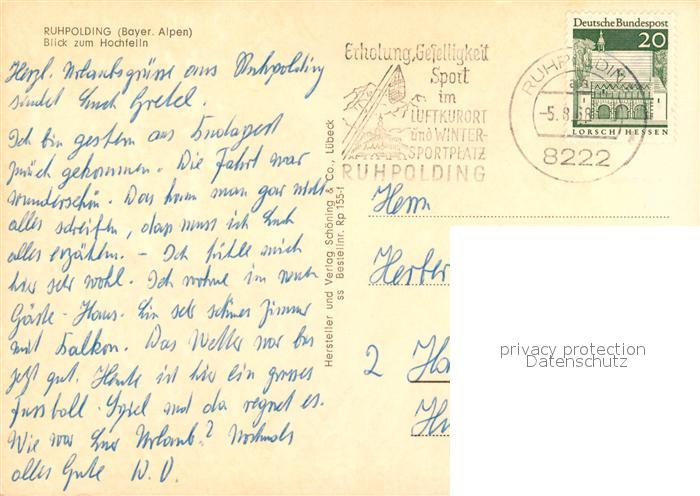 RUHPOLDING (Bayer. Alpen)
Blick zum Hochfelln
Herzl. Urlaubsgrüsse aus Ruhpolding
sendet Euch Gretel.
Ich bin gestern aus Budapest
zurück gekommen. Die Fahrt war
wunderschön. Das kann man gar nicht
alles schreiben, das muss ich Euch
alles erzählen. - Ich fühle mich
hier sehr wohl. Ich wohne im neuen
Gäste-Haus. Ein sehr schönes Zimmer
mit Balkon. Das Wetter war bis
jetzt gut. Heute ist hier ein grosses
Fussball-Spiel und da regnet es.
Wie war Euer Urlaub? Nochmals
alles Gute
Hersteller und Verlag Schöning & Co., Lübeck
ss Bestellnr. Rp 155-f
Erholung, Geselligkeit
Sport
im
LUFTKURORT
und WINTER-
SPORTPLATZ
RUHPOLDING
RUHPOLDING
-5.8.68
8222
Deutsche Bundespost
20
LORSCH/HESSEN
Herrn
Herber
2 Ha
privacy protection
Datenschutz